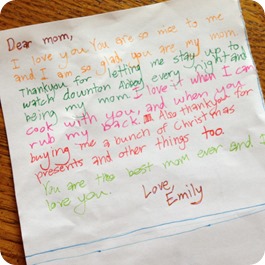 Dear mom,
I love you. You are so nice to me
and I am so glad you are my mom
Thankyou for letting me stay up to
watch downton Abbey every night and
being my mom. I love it when I can
cook with you, and when you
rub my back. Also thankyou for
buying me a bunch of Christmas
presents and other things too.
You are the best mom ever and I
love you.
Love,
Emily